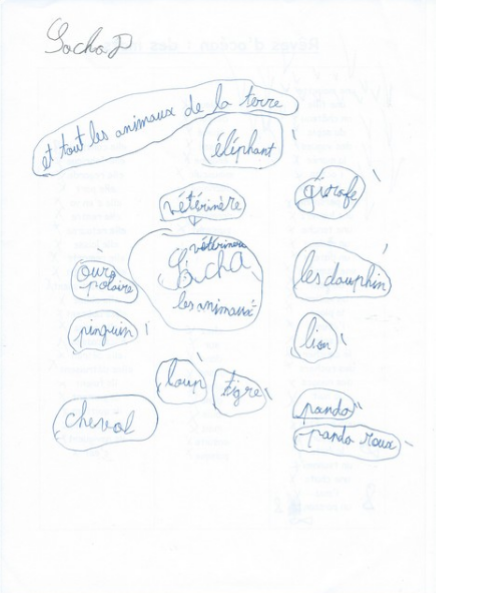 Sacha D
et tout les animaux de la terre
éléphant
girafe
vétérinère
vétérinère
Sacha
les animaux
ours
polaire
les dauphin
pinguin
lion
loup
tigre
panda
cheval
panda roux